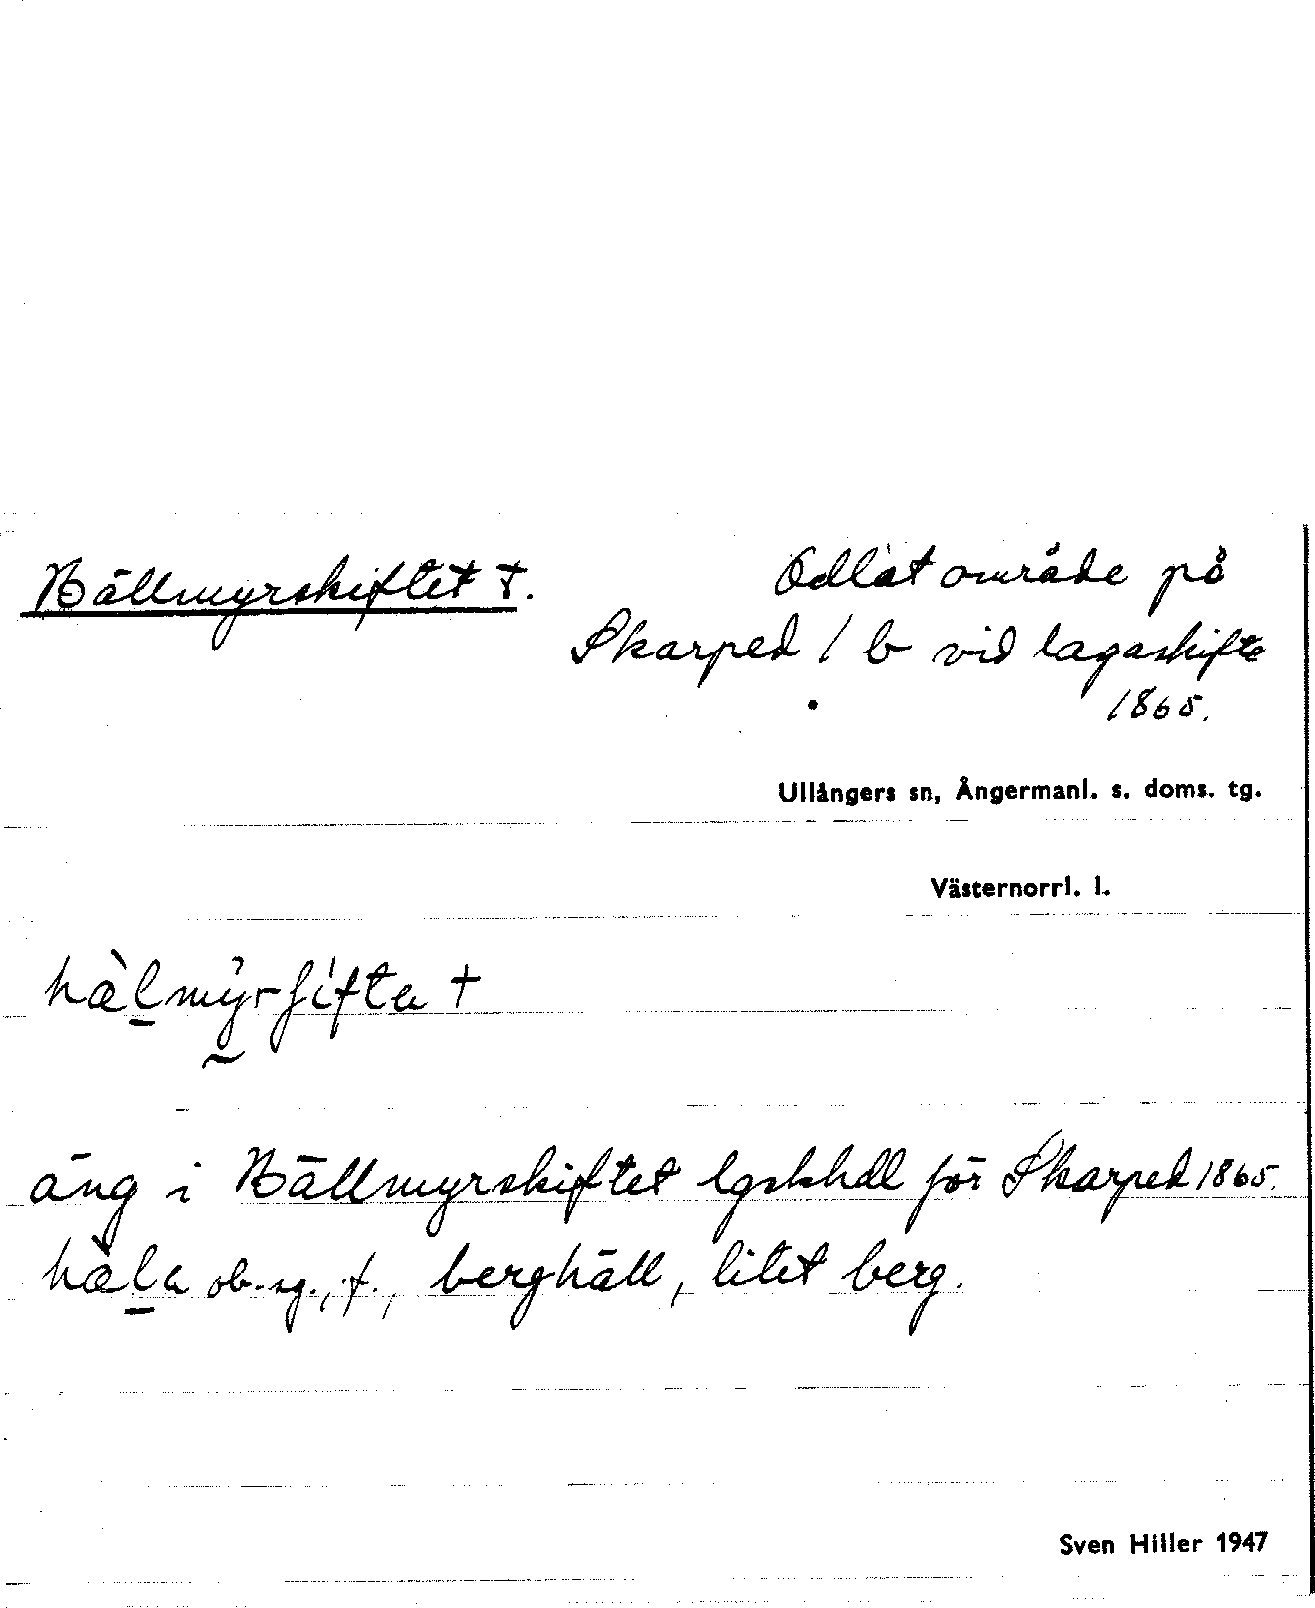 Hällmyrskiftet †.
Odlat område på
Skarped 1 b vid lagaskifte
1865.
Ullångers sn, Ångermanl. s. doms. tg.
Västernorrl. l.
hàl̠mýrʃifta †
äng i Hällmyrskiftet lgskhdl för Skarped 1865.
hàl̠a ob. sg., f., berghäll, litet berg.
Sven Hiller 1947